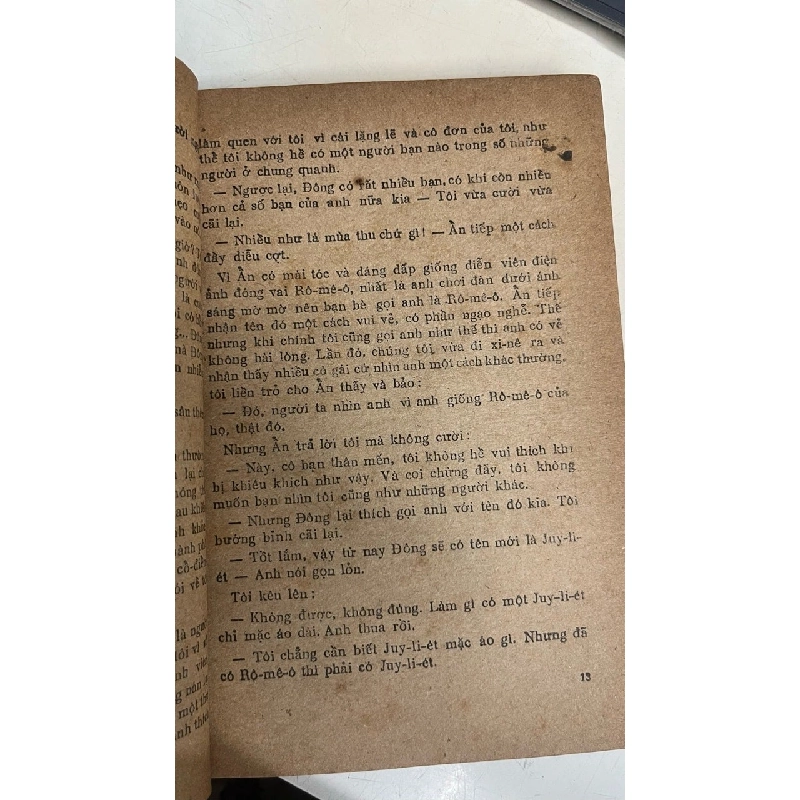 làm quen với tôi vì cái lặng lẽ và cô đơn của tôi, như
thể tôi không hề có một người bạn nào trong số những
người ở chung quanh.
— Ngược lại, Đông có rất nhiều bạn, có khi còn nhiều
hơn cả số bạn của anh nữa kia — Tôi vừa cười vừa
cãi lại.
— Nhiều như lá mùa thu chứ gì! — Ẩn tiếp một cách
đầy diễu cợt.
Vì Ẩn có mái tóc và dáng dấp giống diễn viên điện
ảnh đóng vai Rô-mê-ô, nhất là anh chơi đàn dưới ánh
sáng mờ mờ nên bạn hè gọi anh là Rô-mê-ô. Ẩn tiếp
nhận tên đó một cách vui vẻ, có phần ngạo nghễ. Thế
nhưng khi chính tôi cũng gọi anh như thế thì anh có vẻ
không hài lòng. Lần đó, chúng tôi vừa đi xi-nê ra và
nhận thấy nhiều cô gái cứ nhìn anh một cách khác thường,
tôi liền trỏ cho Ẩn thấy và bảo:
— Đó, người ta nhìn anh vì anh giống Rô-mê-ô của
họ, thật đó.
Nhưng Ẩn trả lời tôi mà không cười:
— Này, cô bạn thân mến, tôi không hề vui thích khi
bị khiêu khích như vậy. Và coi chừng đấy, tôi không
muốn bạn nhìn tôi cũng như những người khác.
— Nhưng Đông lại thích gọi anh với tên đó kia. Tôi
bướng bỉnh cãi lại.
— Tốt lắm, vậy từ nay Đông sẽ có tên mới là Juy-li-
ét — Anh nói gọn lỏn.
Tôi kêu lên:
— Không được, không đúng. Làm gì có một Juy-li-ét
chỉ mặc áo dài. Anh thua rồi.
— Tôi chẳng cần biết Juy-li-ét mặc áo gì. Nhưng đã
có Rô-mê-ô thì phải có Juy-li-ét.
13